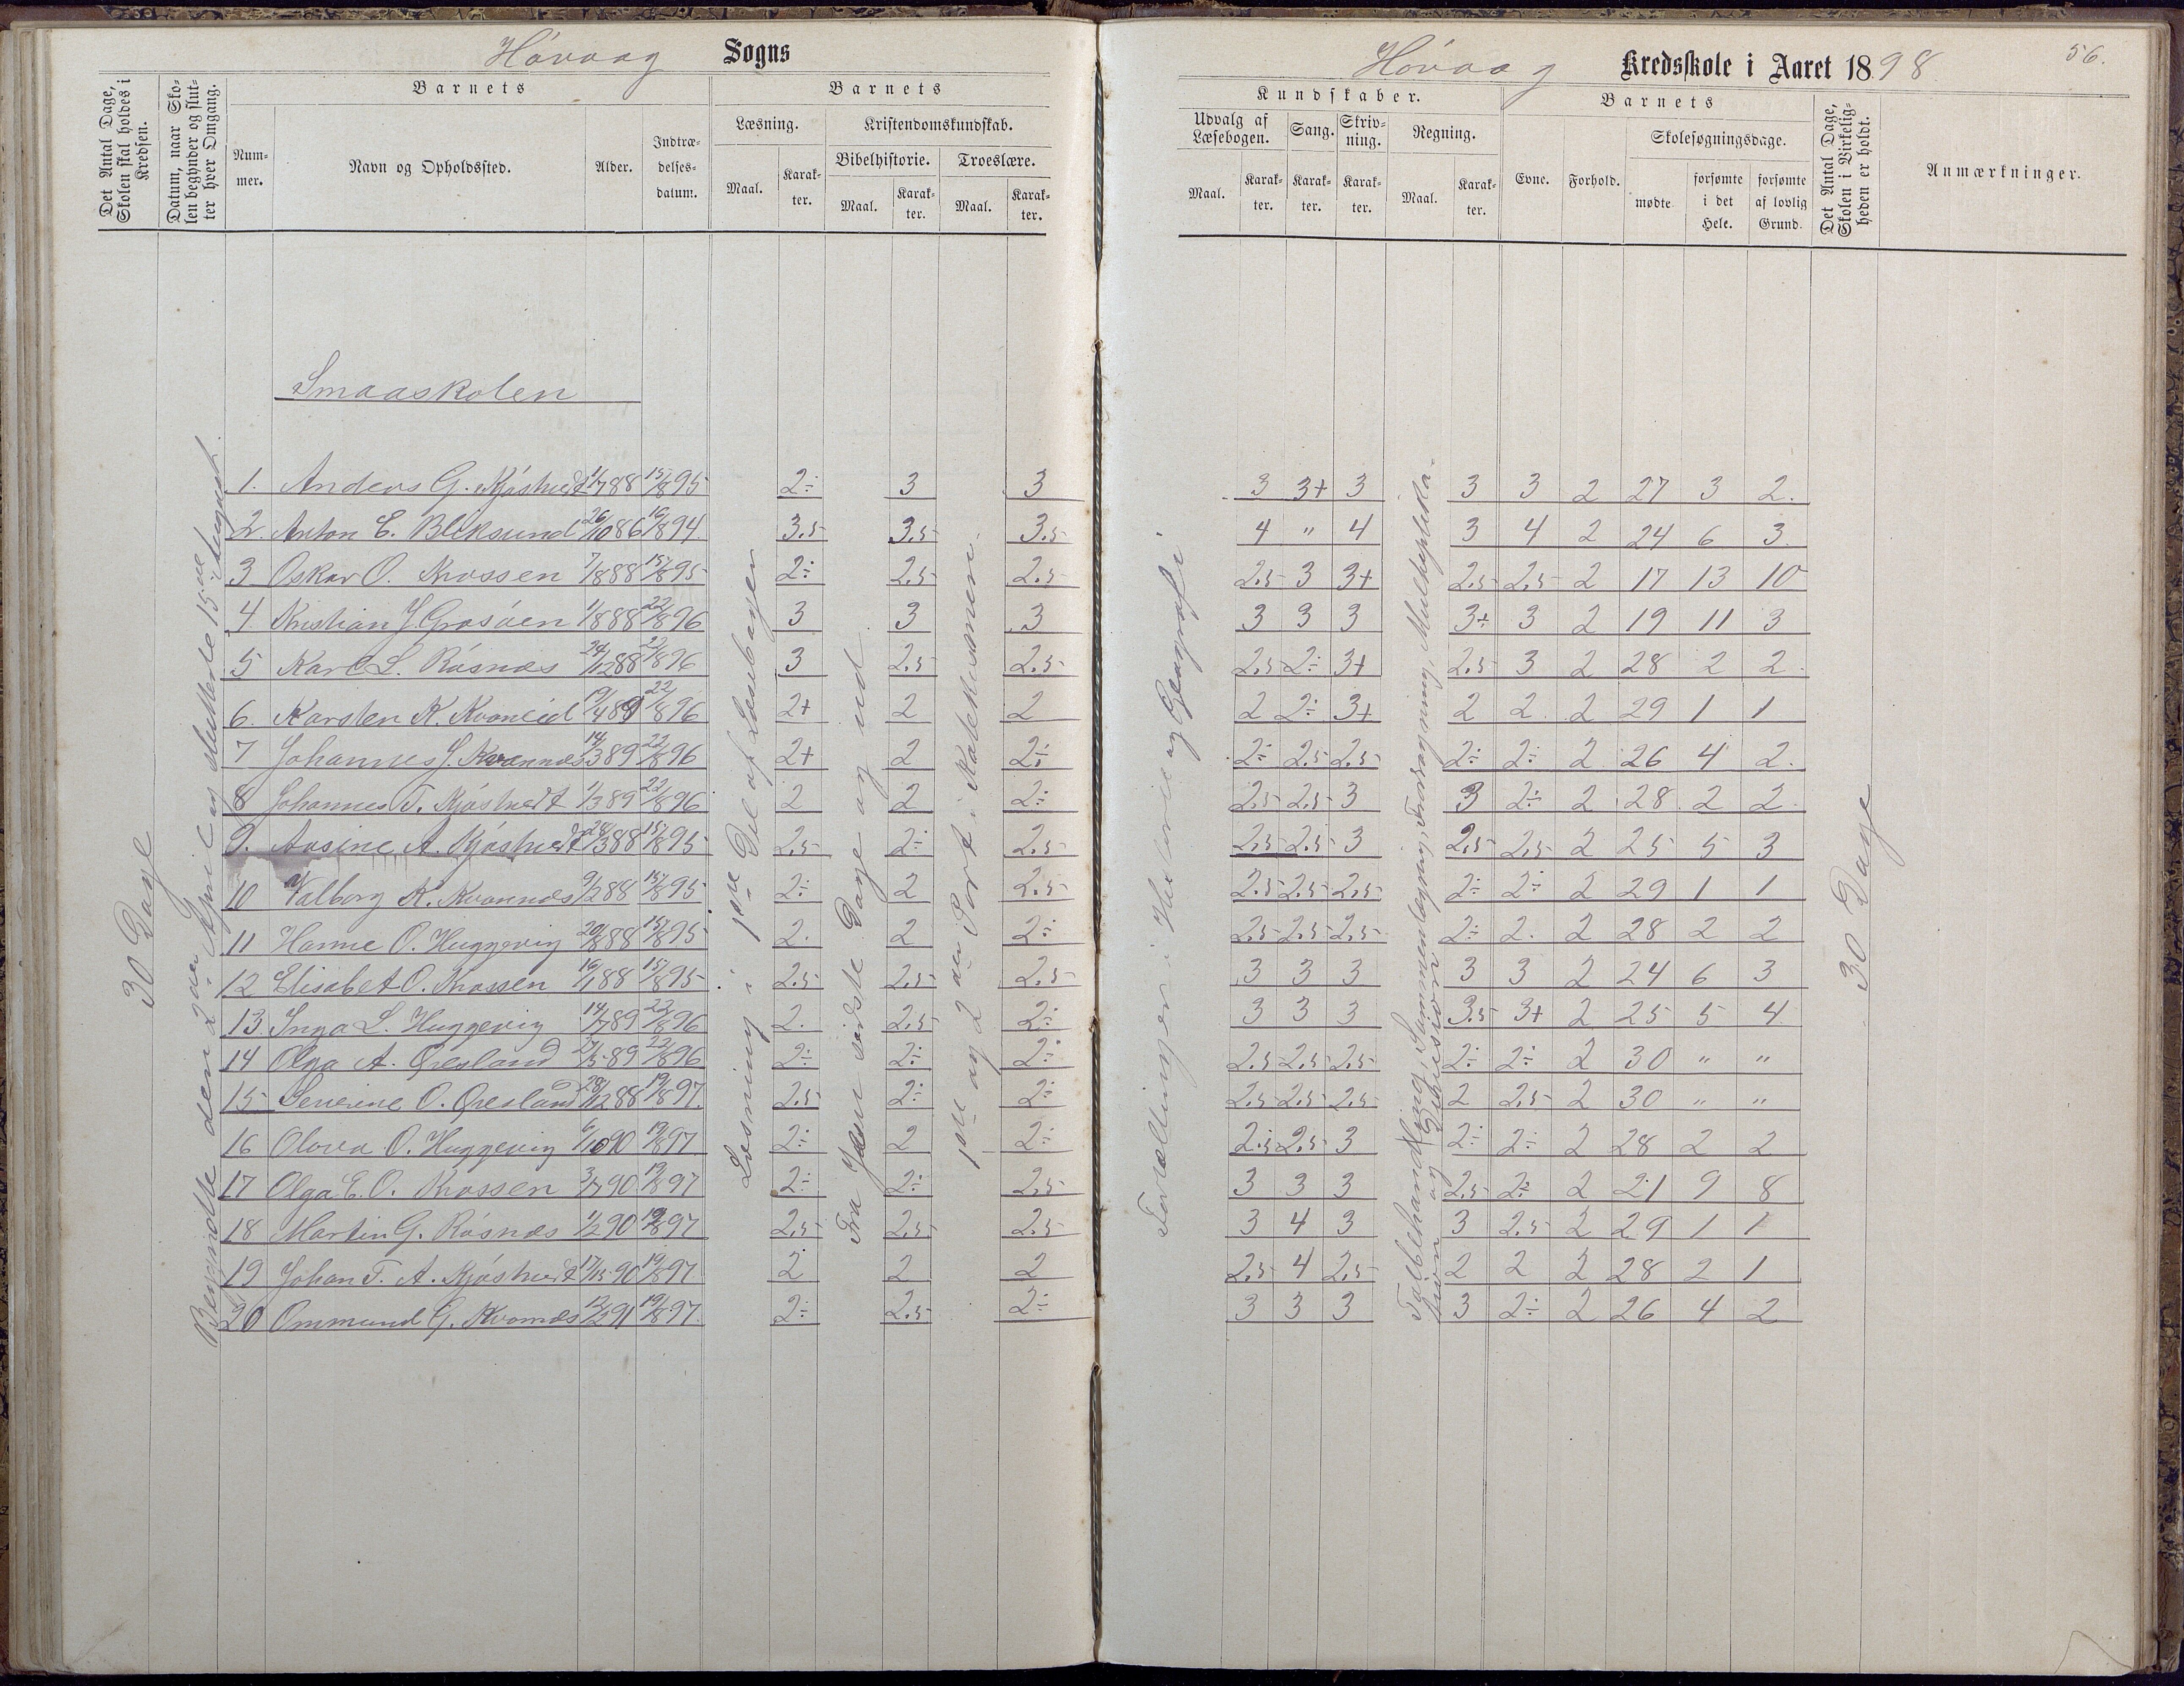 Høvaag Sogns
Det Antal Dage, Skolen skal holdes i Kredsen.
Datum, naar Skolen begynder og slutter hver Omgang.
Barnets
Nummer.
Navn og Opholdssted.
Alder.
Indtrædelsesdatum.
Barnets
Læsning.
Maal.
Karakter.
Kristendomskundskab.
Bibelhistorie.
Maal.
Karakter.
Troeslære.
Maal.
Karakter.
Høvaag Kredsskole i Aaret 1898
56.
Kundskaber.
Udvalg af Læsebogen.
Maal.
Karakter.
Sang.
Karakter.
Skrivning.
Karakter.
Regning.
Maal.
Karakter.
Barnets
Evne.
Forhold.
Skolesøgningsdage.
mødte.
forsømte i det Hele.
forsømte af lovlig Grund.
Det Antal Dage, Skolen i Virkeligheden er holdt.
Anmærkninger.
Smaaskolen
30 Dage
Begyndte den 2den April og sluttede 15de August.
Læsning i 1ste Del af Læsebogen
Fra Jesu sidste Dage og ud
1ste og 2den Part i Katekismen.
Fortællinger i Historie og Geografi
Talbehandling, Sammenlægning, Fradragning, Multiplikasjon og Division
30 Dage
1. Anders G. Kjøstvedt 1/7 88 15/8 95 2÷ 3 3 3 3+ 3 3 3 2 27 3 2.
2. Anton E. Bliksund 26/10 86 16/8 94. 3.5 3.5 3.5 4 " 4 3 4 2 24 6 3.
3 Oskar O. Krossen 7/8 88 15/8 95 2÷ 2.5 2.5 2.5 3 3+ 2.5 2.5 2 17 13 10
4 Kristian J. Grosøen 1/8 88 22/8 96 3 3 3 3 3 3 3÷ 3 2 19 11 3
5 Karl L. Røsnes 24/12 88 22/8 96 3 2.5 2.5 2.5 2÷ 3+ 2.5 3 2 28 2 2.
6. Karsten K. Kvaneid 19/4 89 22/8 96 2+ 2 2 2 2÷ 3+ 2 2 2 29 1 1
7 Johannes J. Kvannes 14/3 89 22/8 96 2+ 2 2÷ 2÷ 2.5 2.5 2÷ 2÷ 2 26 4 2.
8 Johannes T. Kjøstvedt 1/3 89 22/8 96 2 2 2÷ 2.5 2.5 3 3 2÷ 2 28 2 2.
9. Aasine A. Kjøstvedt 28/3 88 15/8 95 2.5 2÷ 2.5 2.5 2.5 3 2.5 2.5 2 25 5 3
10 Valborg K. Kvannes 9/2 88 15/8 95 2÷ 2 2.5 2.5 2.5 2.5 2÷ 2÷ 2 29 1 1
11 Hanne O. Huggevig 20/8 88 15/8 95 2. 2 2÷ 2.5 2.5 2.5 2÷ 2. 2 28 2 2
12 Elisabet O. Krossen 16/1 88 15/8 95 2.5 2.5 2.5 3 3 3 3 3 2 24 6 3
13. Inga L. Huggevig 14/7 89 22/8 96 2. 2.5 2÷ 3 3 3 3.5 3+ 2 25 5 4
14 Olga A. Øresland 27/5 89 22/8 96 2÷ 2÷ 2÷ 2.5 2.5 2.5 2÷ 2÷ 2 30 " "
15 Severine O. Øresland 28/12 88 19/8 97. 2.5 2÷ 2÷ 2.5 2.5 2.5 2 2.5 2 30 " "
16 Olava O. Huggevig 6/10 90 19/8 97 2÷ 2 2÷ 2.5 2.5 3 2÷ 2÷ 2 28 2 2
17 Olga E. O. Krossen 3/7 90 19/8 97 2÷ 2÷ 2.5 3 3 3 2.5 2÷ 2 21 9 8
18 Martin G. Røsnes 1/2 90 19/8 97 2.5 2.5 2.5 3 4 3 3 2.5 2 29 1 1
19 Johan T. A. Kjøstvedt 90 19/8 97 2 2 2 2.5 4 2.5 2 2 2 28 2 1
20 Ommund G. Kvannes 12/2 91 19/8 97. 2÷ 2.5 2÷ 3 3 3 3 2÷ 2 26 4 2